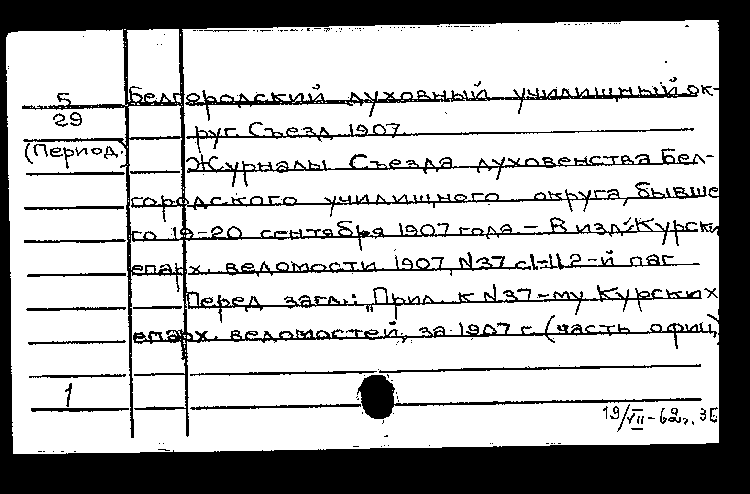 5
29
(Период.)
Белгородский духовный училищный ок-
руг. Съезд 1907.
Журналы Съезда духовенства Бел-
городского училищного округа, бывше
го 19-20 сентября 1907 года. - В изд: Курски
епарх. ведомости 1907, N37 с1-112 2-й паг
Перед загл.: „Прил. к N37-му Курских
епарх. ведомостей, за 1907 г. (часть офиц.)
1
19/VII-62г.